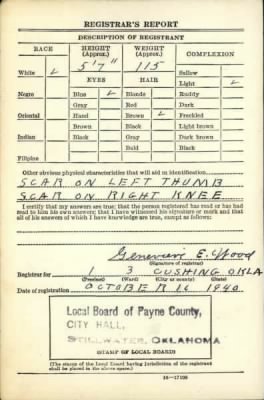 REGISTRAR'S REPORT
DESCRIPTION OF REGISTRANT
RACE HEIGHT (Approx.) WEIGHT (Approx.) COMPLEXION
5' 7" 115
White ✓ Sallow
EYES HAIR Light ✓
Negro Blue ✓ Blonde Ruddy
Gray Red Dark
Oriental Hazel Brown ✓ Freckled
Brown Black Light brown
Indian Black Gray Dark brown
Bald Black
Filipino
Other obvious physical characteristics that will aid in identification
SCAR ON LEFT THUMB
SCAR ON RIGHT KNEE
I certify that my answers are true; that the person registered has read or has had
read to him his own answers; that I have witnessed his signature or mark and that
all of his answers of which I have knowledge are true, except as follows:
Genevieve E. Wood
(Signature of registrar)
Registrar for 1 3 CUSHING OKLA
(Precinct) (Ward) (City or county) (State)
Date of registration OCTOBER 16 1940
Local Board of Payne County,
CITY HALL,
STILLWATER, OKLAHOMA
(STAMP OF LOCAL BOARD)
(The stamp of the Local Board having jurisdiction of the registrant
shall be placed in the above space.)
16—17105